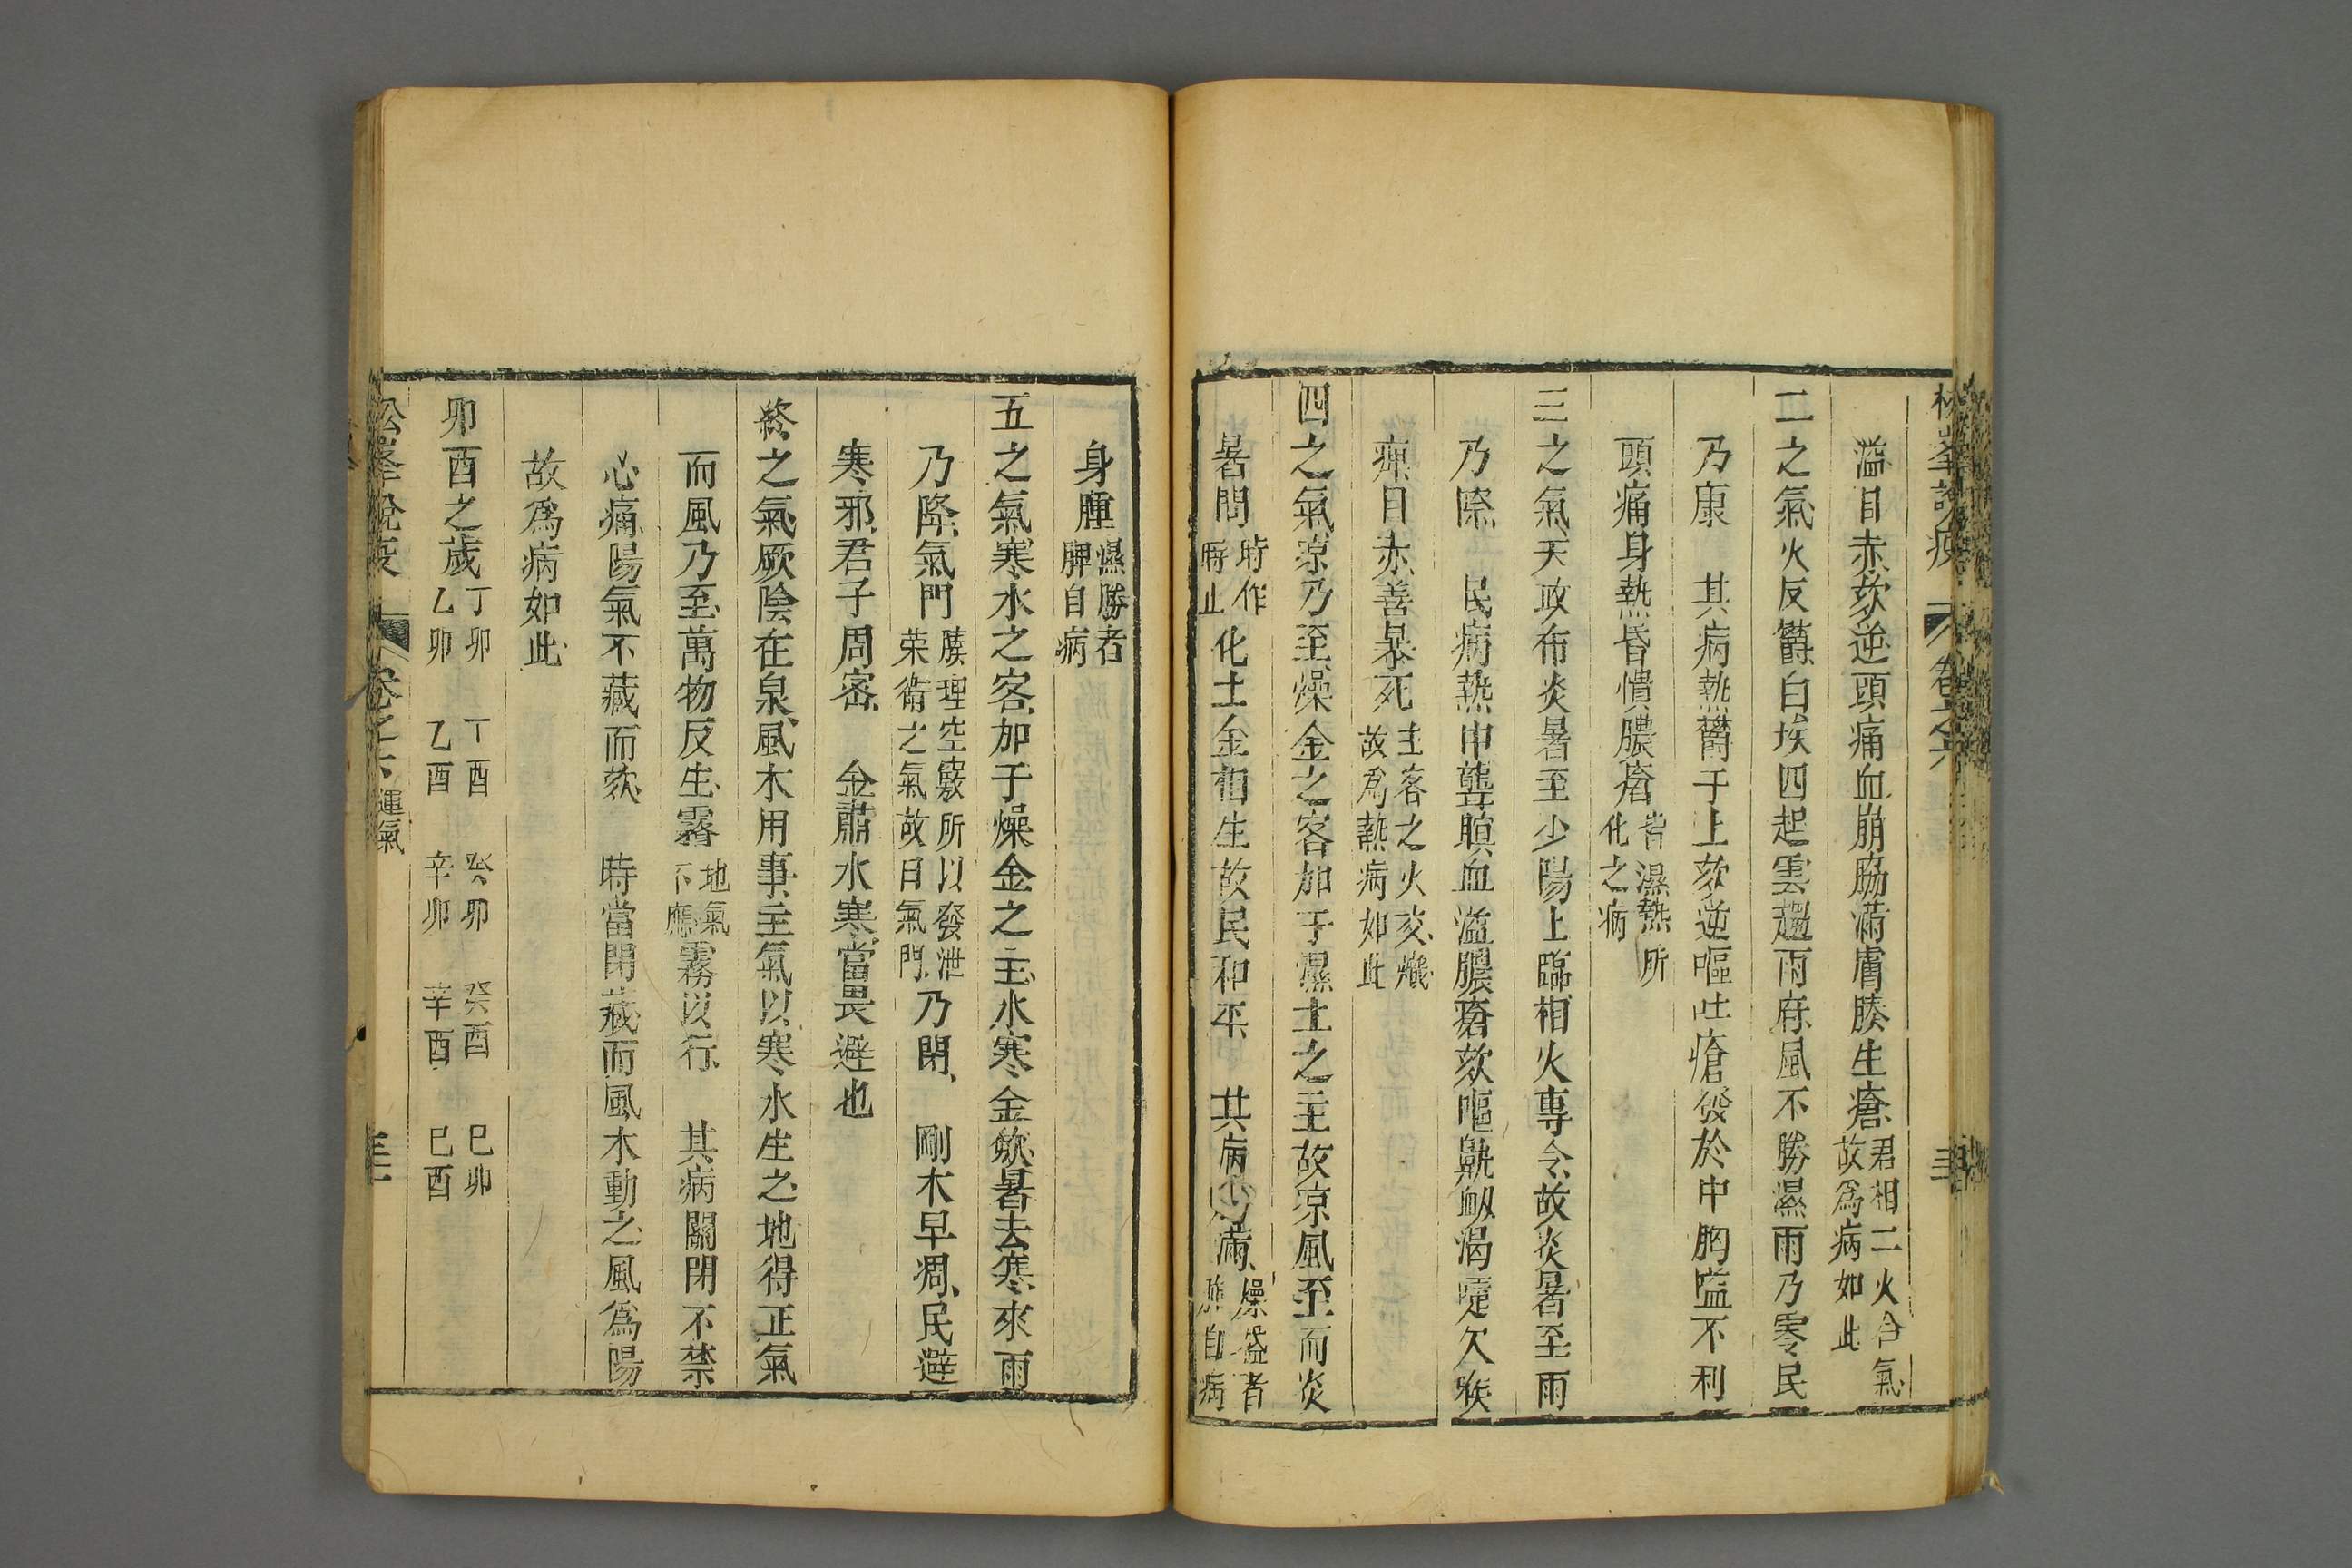 松峯說疫 卷之六
溢目赤欬逆頭痛血崩脇滿膚腠生瘡君相二火合氣故爲病如此
二之氣火反鬱白埃四起雲趨雨府風不勝濕雨乃零民
乃康 其病熱鬱于上欬逆嘔吐瘡發於中胸嗌不利
頭痛身熱昏憒膿瘡皆濕熱所化之病
三之氣天政布炎暑至少陽上臨相火專令故炎暑至雨
乃際 民病熱中聾瞑血溢膿瘡欬嘔鼽衂渴嚏欠喉
痺目赤善暴死主客之火交熾故爲熱病如此
四之氣凉乃至燥金之客加于濕土之主故凉風至而炎
暑間時作時止化土金相生故民和平 其病滿燥盛者自病
身腫濕勝者脾自病
五之氣寒水之客加于燥金之主水寒金歛暑去寒來雨
乃降氣門腠理空竅所以發泄荣衛之氣故曰氣門乃閉 剛木早凋民避
寒邪君子周密 金肅水寒當畏避也
終之氣厥陰在泉風木用事主氣以寒水生之地得正氣
而風乃至萬物反生霿地氣不應霧以行 其病關閉不禁
心痛陽氣不藏而欬 時當閉藏而風木動之風爲陽
故爲病如此
卯酉之歲丁卯 丁酉 癸卯 癸酉 巳卯 乙卯 乙酉 辛卯 辛酉 巳酉
松峯說疫 卷之六 運氣